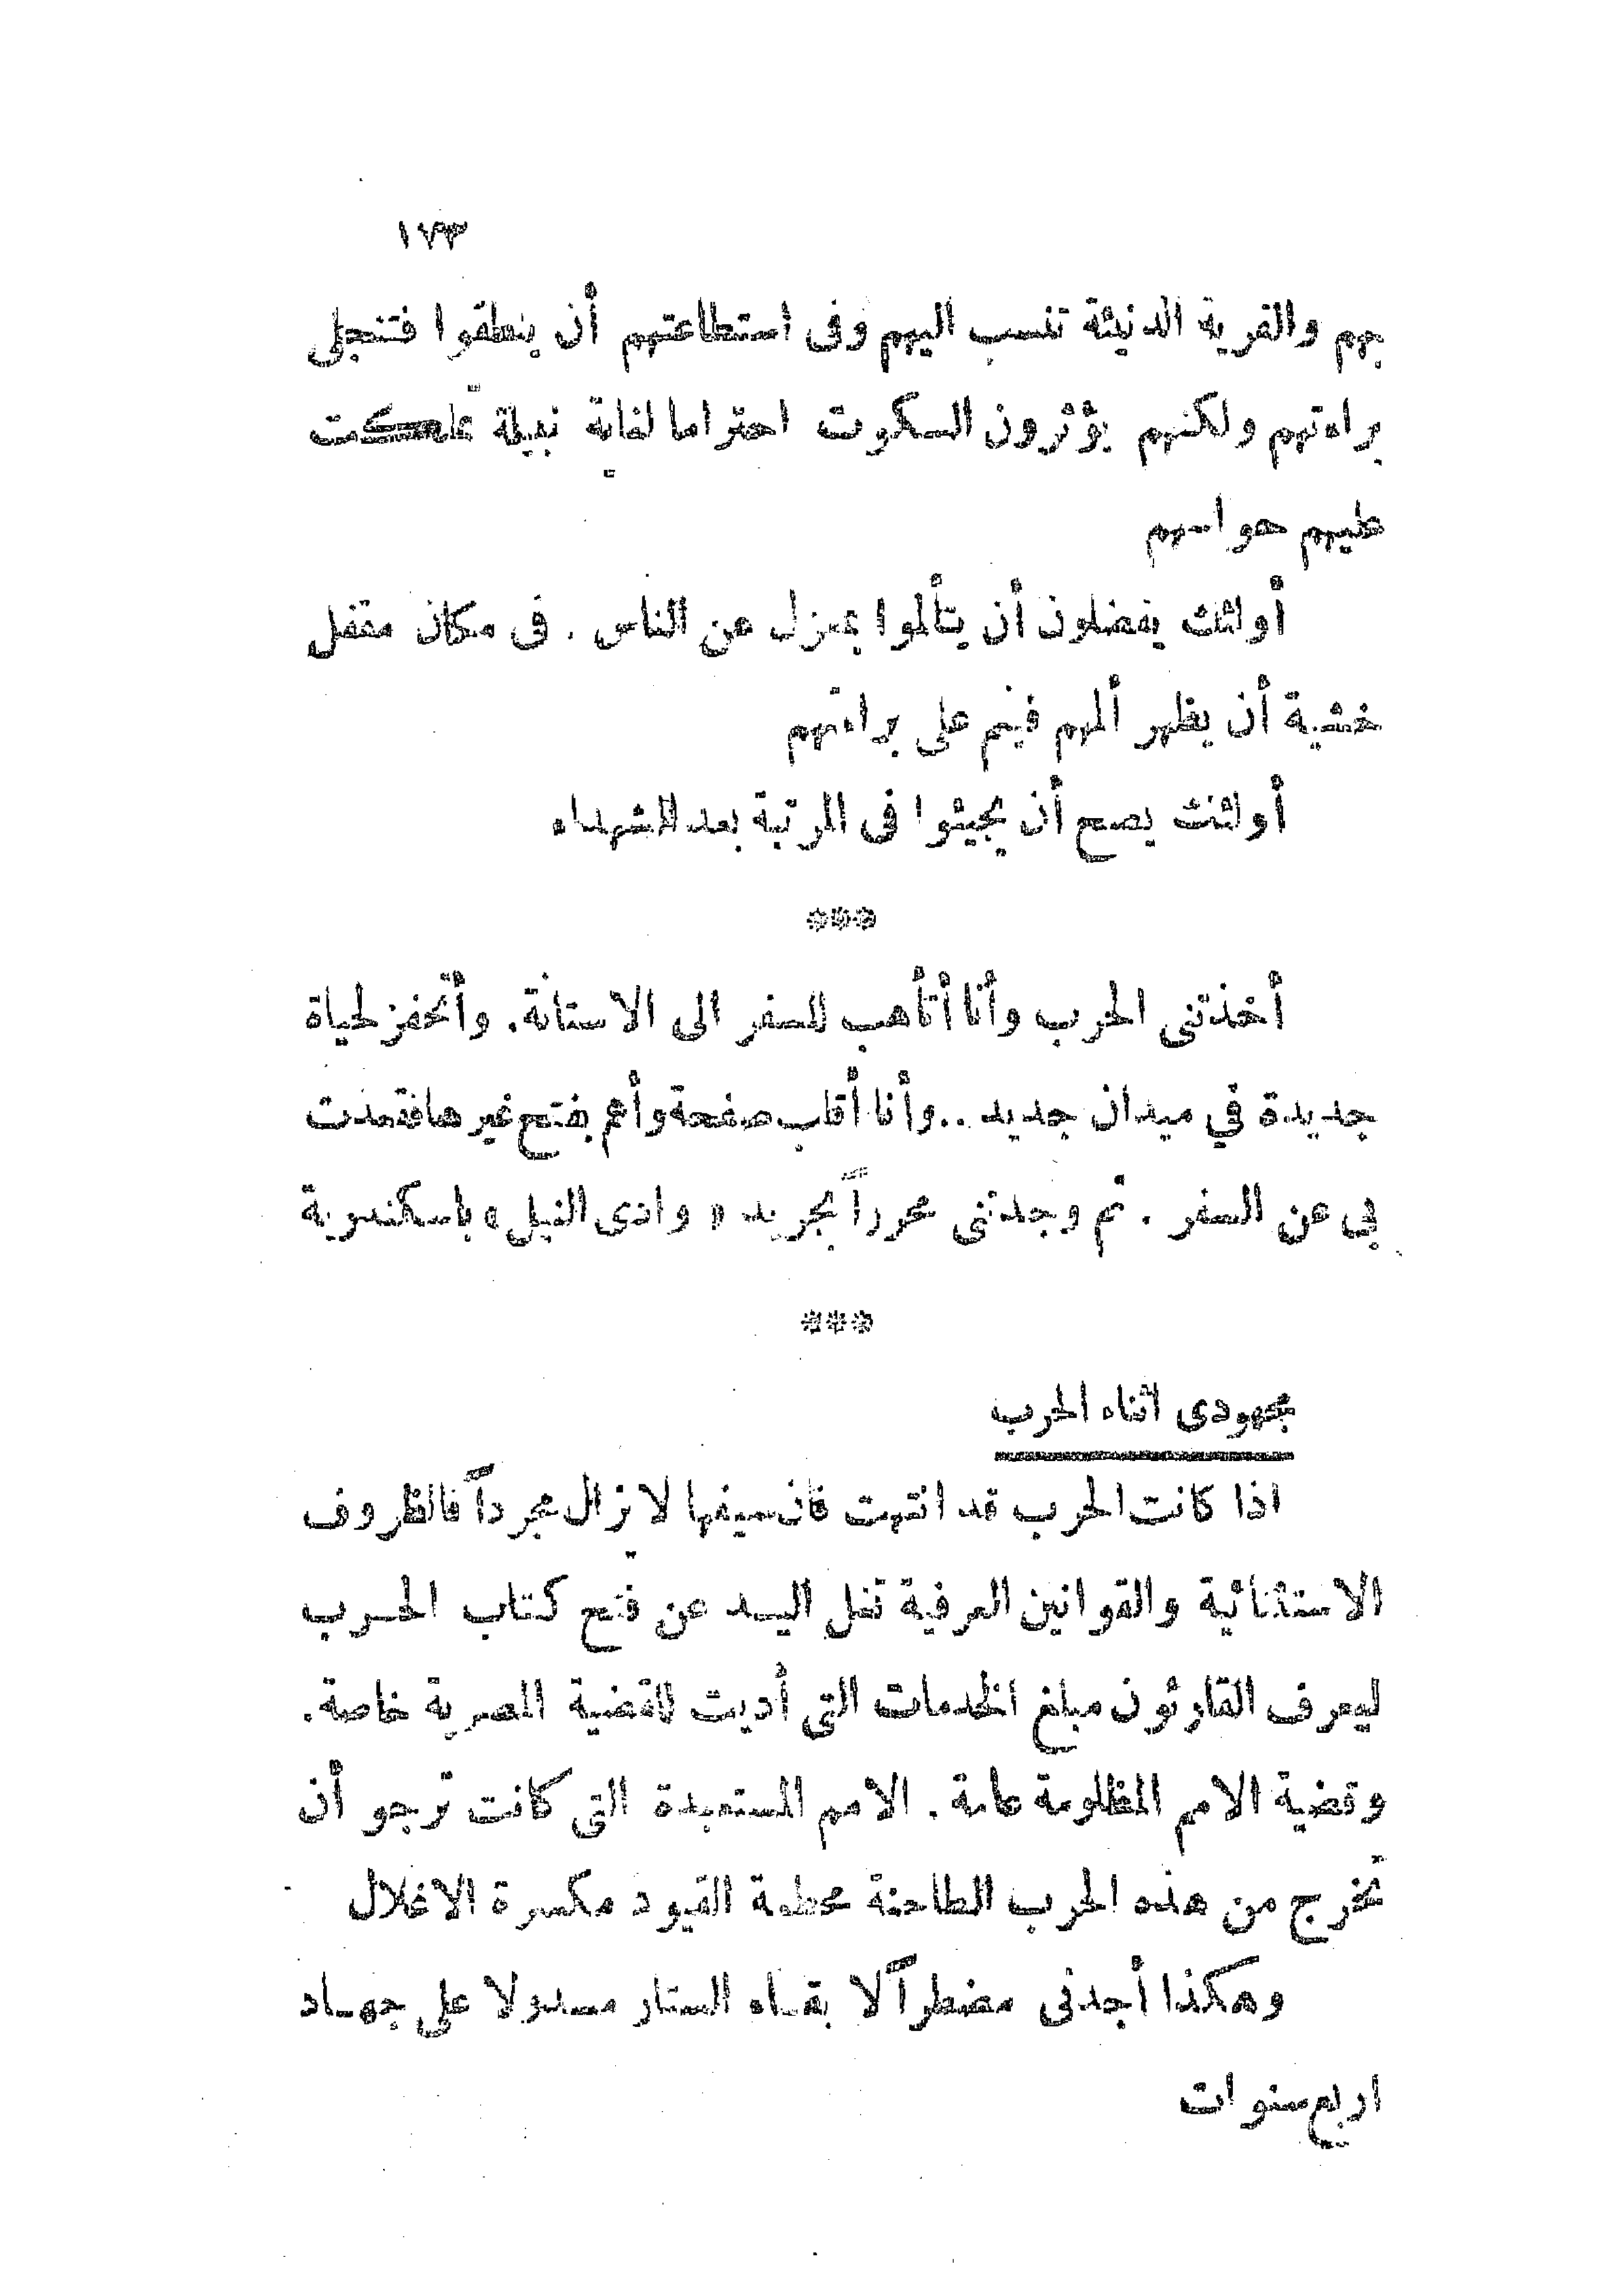 ١٧٣
بهم والفرية الدنيئة تنسب اليهم وفى استطاعتهم أن ينطقوا فتنجلى
براءتهم ولكنهم يؤثرون السكوت احتراما لغاية نبيلة تملكت
عليهم حواسهم
أولئك يفضلون أن يتألموا بمعزل عن الناس . فى مكان مقفل
خشية أن يظهر ألمهم فينم على براءتهم
أولئك يصح أن يجيئوا فى المرتبة بعد الشهداء
***
أخذتنى الحرب وأنا أتأهب للسفر الى الاستانة. وأتحفز لحياة
جديدة في ميدان جديد .. وأنا أقلب صفحة وأهم بفتح غيرها فقعدت
بى عن السفر . ثم وجدتنى محرراً بجريد « وادى النيل » باسكندرية
***
مجهودى اثناء الحرب
اذا كانت الحرب قد انتهت فان سيفها لا يزال مجرداً فالظروف
الاستثنائية والقوانين العرفية تغل اليد عن فتح كتاب الحرب
ليعرف القارئون مبلغ الخدمات التي أديت للقضية المصرية خاصة.
وقضية الامم المظلومة عامة. الامم المستعبدة التى كانت ترجو أن
تخرج من هذه الحرب الطاحنة محطمة القيود مكسرة الاغلال
وهكذا أجدنى مضطراً لا بقاء الستار مسدولا على جهاد
اربع سنوات